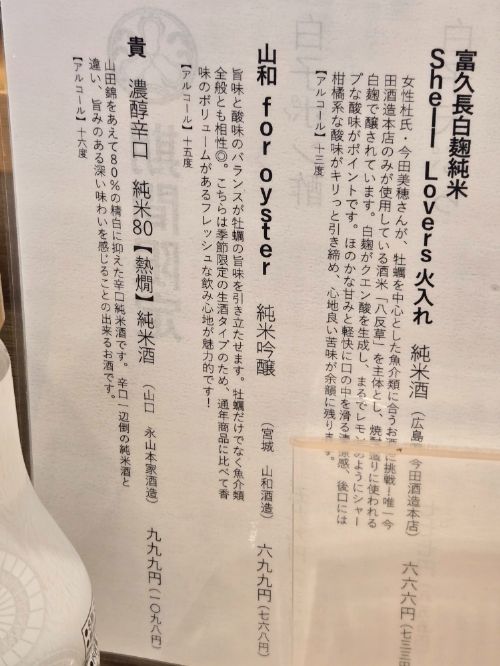 富久長白麹純米
Shell Lovers 火入れ 純米酒 (広島 今田酒造本店) 六六六円(七三三
女性杜氏・今田美穂さんが、牡蠣を中心とした魚介類に合うお酒に挑戦!唯一今
田酒造本店のみが使用している酒米「八反草」を主体とし、焼酎造りに使われる
白麹で醸されています。白麹がクエン酸を生成し、まるでレモンのようにシャー
プな酸味がポイントです。ほのかな甘みと軽快に口の中を滑る清涼感、後口には
柑橘系な酸味がキリっと引き締め、心地良い苦味が余韻に残ります。
【アルコール】十三度
山和 for oyster 純米吟醸 (宮城 山和酒造) 六九九円(七六八円)
旨味と酸味のバランスが牡蠣の旨味を引き立たせます。牡蠣だけでなく魚介類
全般とも相性◎。こちらは季節限定の生酒タイプのため、通年商品に比べて香
味のボリュームがあるフレッシュな飲み心地が魅力的です!
【アルコール】十五度
貴 濃醇辛口 純米80【熱燗】純米酒 (山口 永山本家酒造) 九九九円(一〇九八円)
山田錦をあえて80%の精白に抑えた辛口純米酒です。辛口一辺倒の純米酒と
違い、旨みのある深い味わいを感じることの出来るお酒です。
【アルコール】十六度